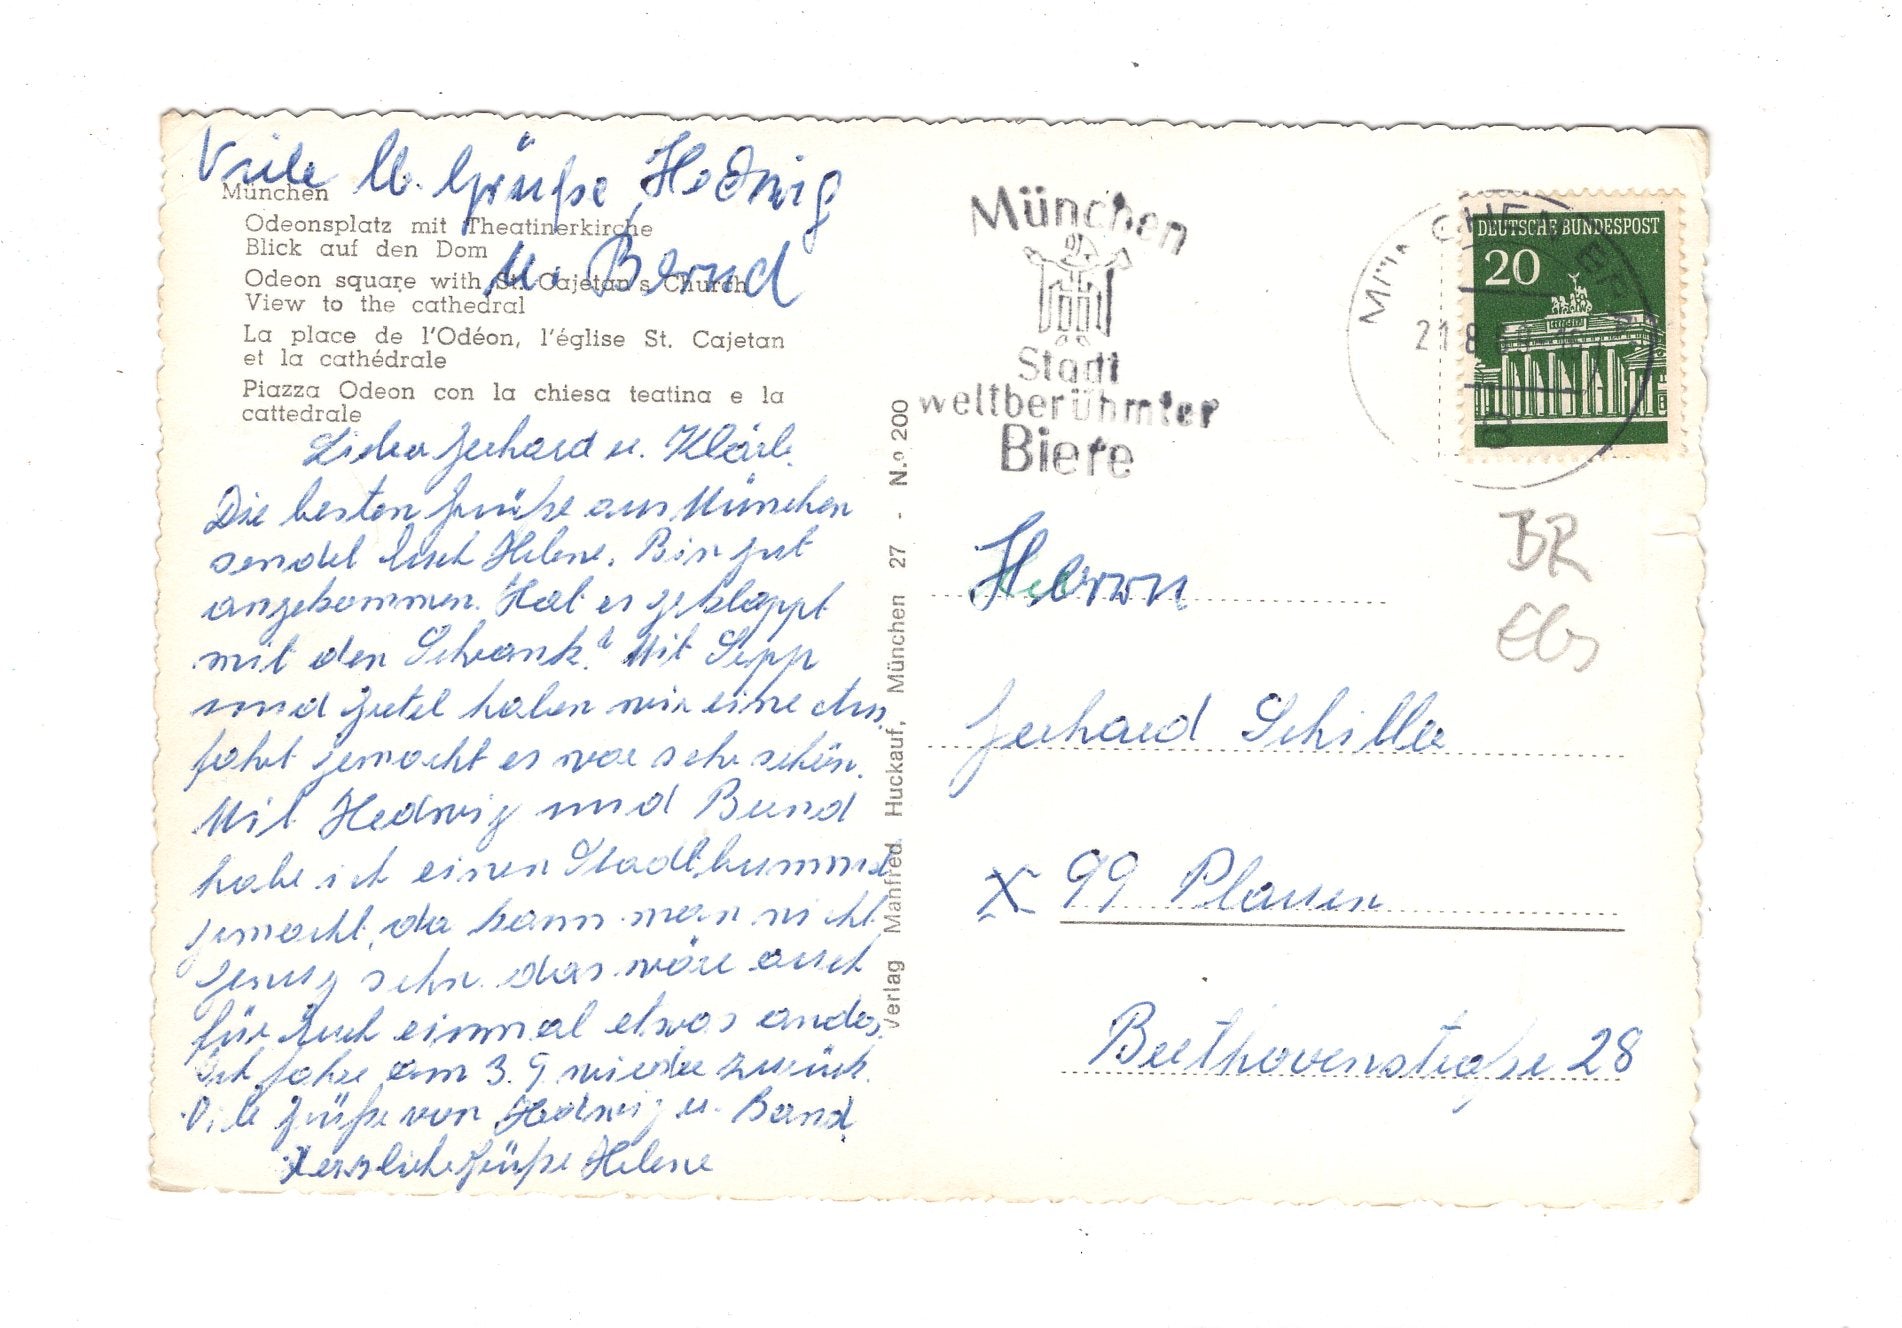 Viele lb. Grüße, Hedwig
u. Bernd
München
Odeonsplatz mit Theatinerkirche
Blick auf den Dom
Odeon square with St. Cajetan's Church
View to the cathedral
La place de l'Odéon, l'église St. Cajetan
et la cathédrale
Piazza Odeon con la chiesa teatina e la
cattedrale
Lieber Gerhard u. Klärle.
Die besten Grüße aus München
sendet Euch Helene. Bin gut
angekommen. Hat es geklappt
mit den Schrank? Mit Sepp
und Gretel haben wir eine Aus
fahrt gemacht es war sehr schön.
Mit Hedwig und Bernd
habe ich einen Stadtbummel
gemacht, da kann man nicht
genug sehn. das wäre auch
für Euch einmal etwas anders.
Ich fahre am 3. 9 wieder zurück.
Viele Grüße von Hedwig u. Bernd
Herzliche Grüße Helene
Verlag Manfred Huckauf, München 27 - N.º 200
München
Stadt
weltberühmter
Biere
DEUTSCHE BUNDESPOST
20
21.8.69
B
BR
Herrn
Gerhard Schiller
X 99 Plauen
Beethovenstraße 28